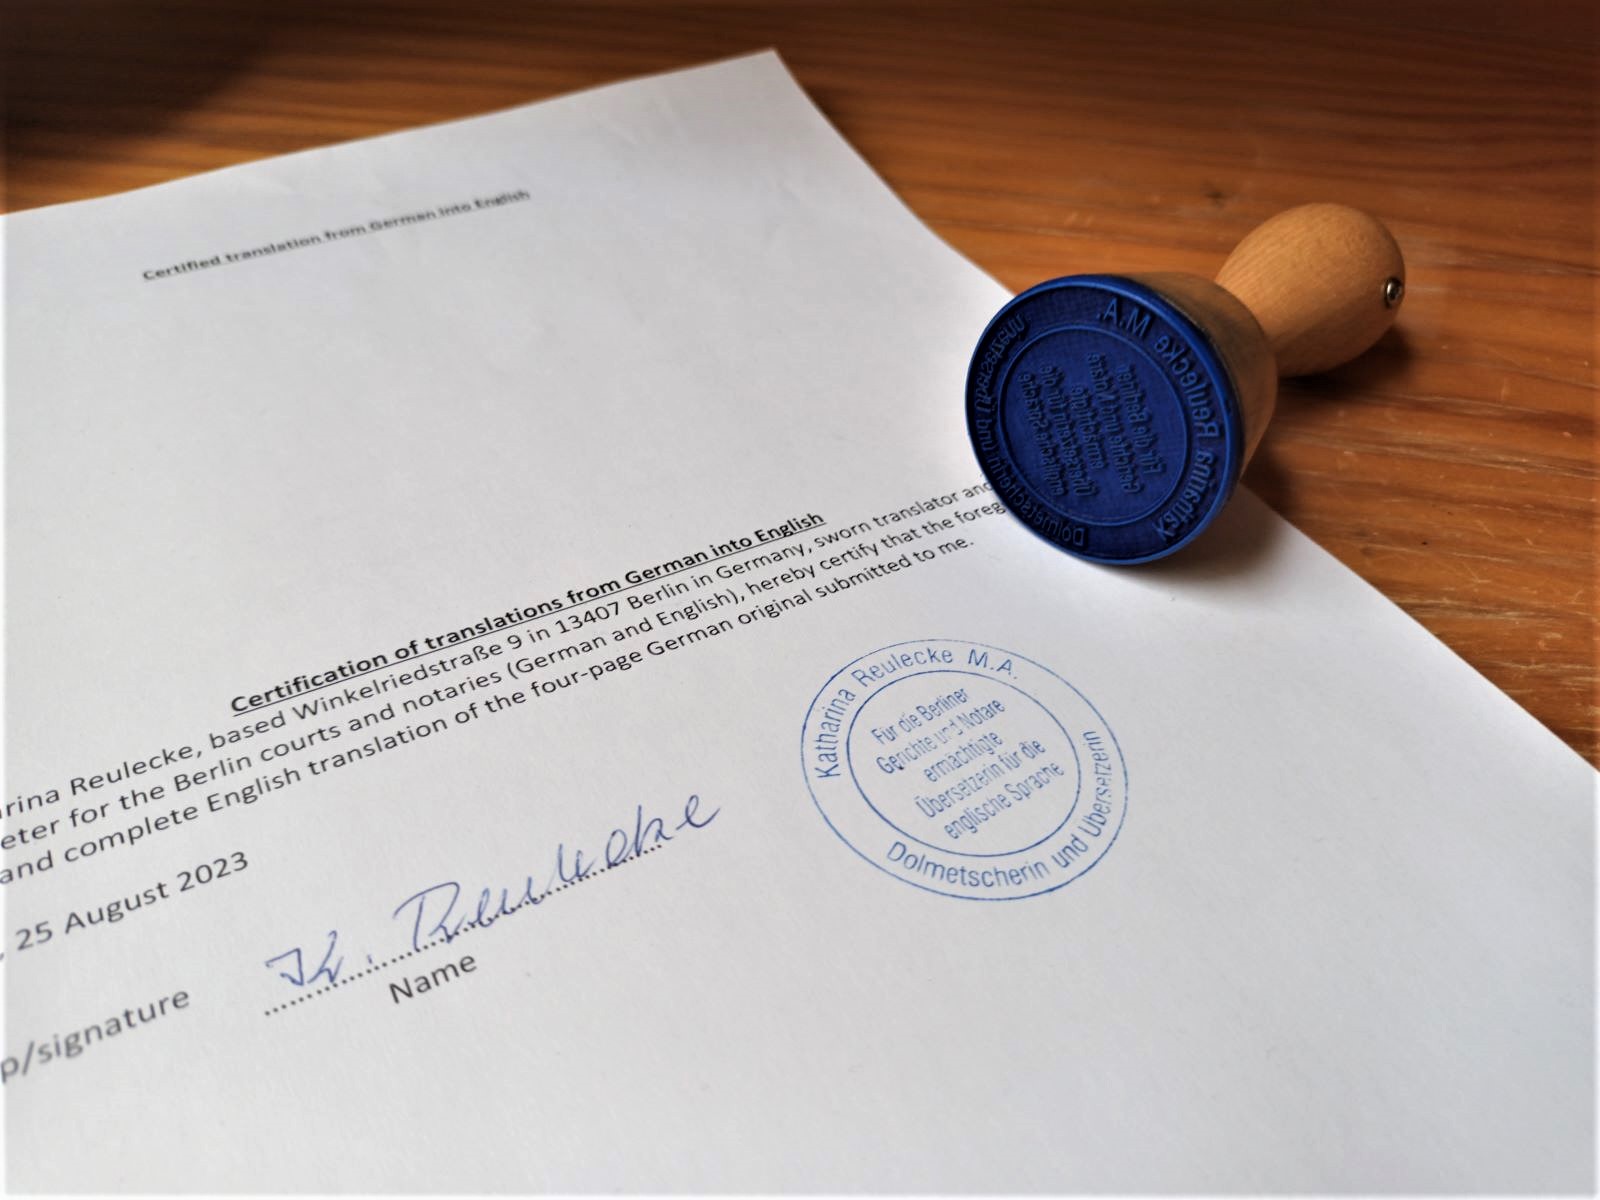 Certified translation from German into English
Certification of translations from German into English
arina Reulecke, based Winkelriedstraße 9 in 13407 Berlin in Germany, sworn translator and
eter for the Berlin courts and notaries (German and English), hereby certify that the foreg
and complete English translation of the four-page German original submitted to me.
, 25 August 2023
K. Reulecke
p/signature
Name
Katharina Reulecke M.A.
Für die Berliner
Gerichte und Notare
ermächtigte
Übersetzerin für die
englische Sprache
Dolmetscherin und Übersetzerin
Katharina Reulecke M.A.
Für die Berliner
Gerichte und Notare
ermächtigte
Übersetzerin für die
englische Sprache
Dolmetscherin und Übersetzerin